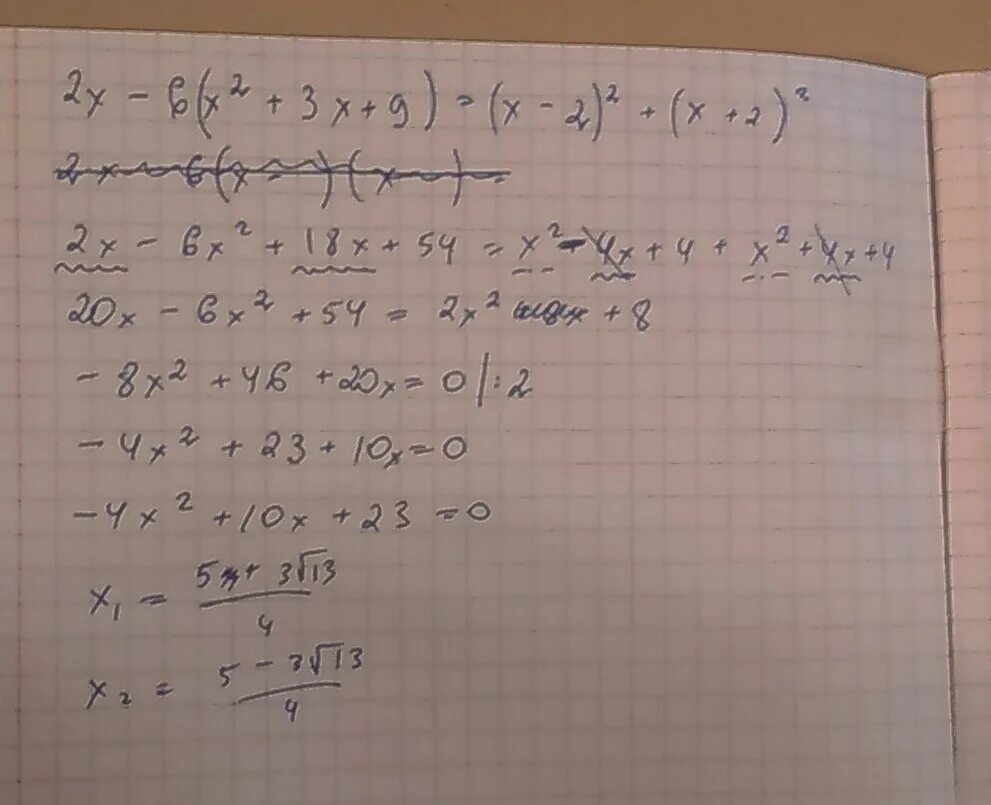 2x - 6(x² + 3x + 9) = (x - 2)² + (x + 2)²
2x - 6(x )(x ) =
2x - 6x² + 18x + 54 = x² - 4x + 4 + x² + 4x + 4
20x - 6x² + 54 = 2x² + 8
- 8x² + 46 + 20x = 0 |: 2
- 4x² + 23 + 10x = 0
- 4x² + 10x + 23 = 0
x₁ = (5 + 3√13)/4
x₂ = (5 - 3√13)/4